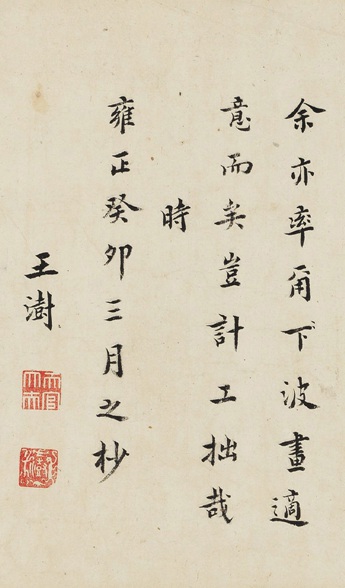 余亦率爾下波畫適
意而矣豈計工拙哉
時
雍正癸卯三月之杪
王澍